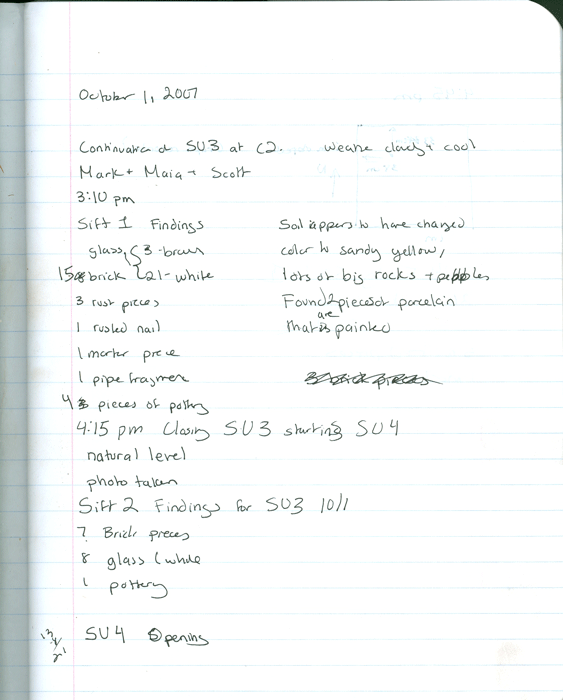 October 1, 2007
Continuation of SU3 at C2. weathe cloudy + cool
Mark + Maia + Scott
3:10 pm
Sift 1 Findings
glass, 3 - brown
15 brick 21 - white
3 rust pieces
1 rusted nail
1 morter piece
1 pipe fragment
4 pieces of pottery
Soil appers to have changed
color to sandy yellow,
lots of big rocks + pebbles
Found 2 pieces of porcelain
that are painted
4:15 pm Closing SU3 starting SU4
natural level
photo taken
Sift 2 Findings for SU3 10/1
7 Brick pieces
8 glass (white
1 pottery
SU4 Opening